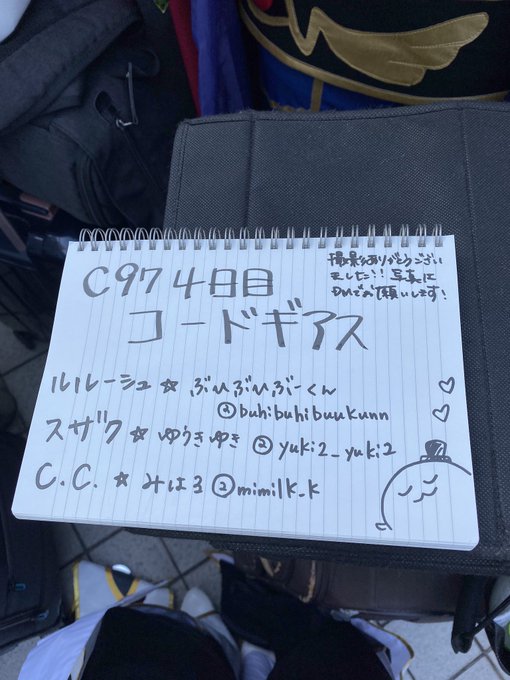 C97 4日目
コードギアス
撮影ありがとうござい
ました!! 写真は
DMでお願いします!
ルルーシュ☆ ぶひぶひぶーくん
@buhibuhibuukunn
スザク☆ ゆうきゆき @yuki2_yuki2
C.C.☆ みはる @mimilk_k